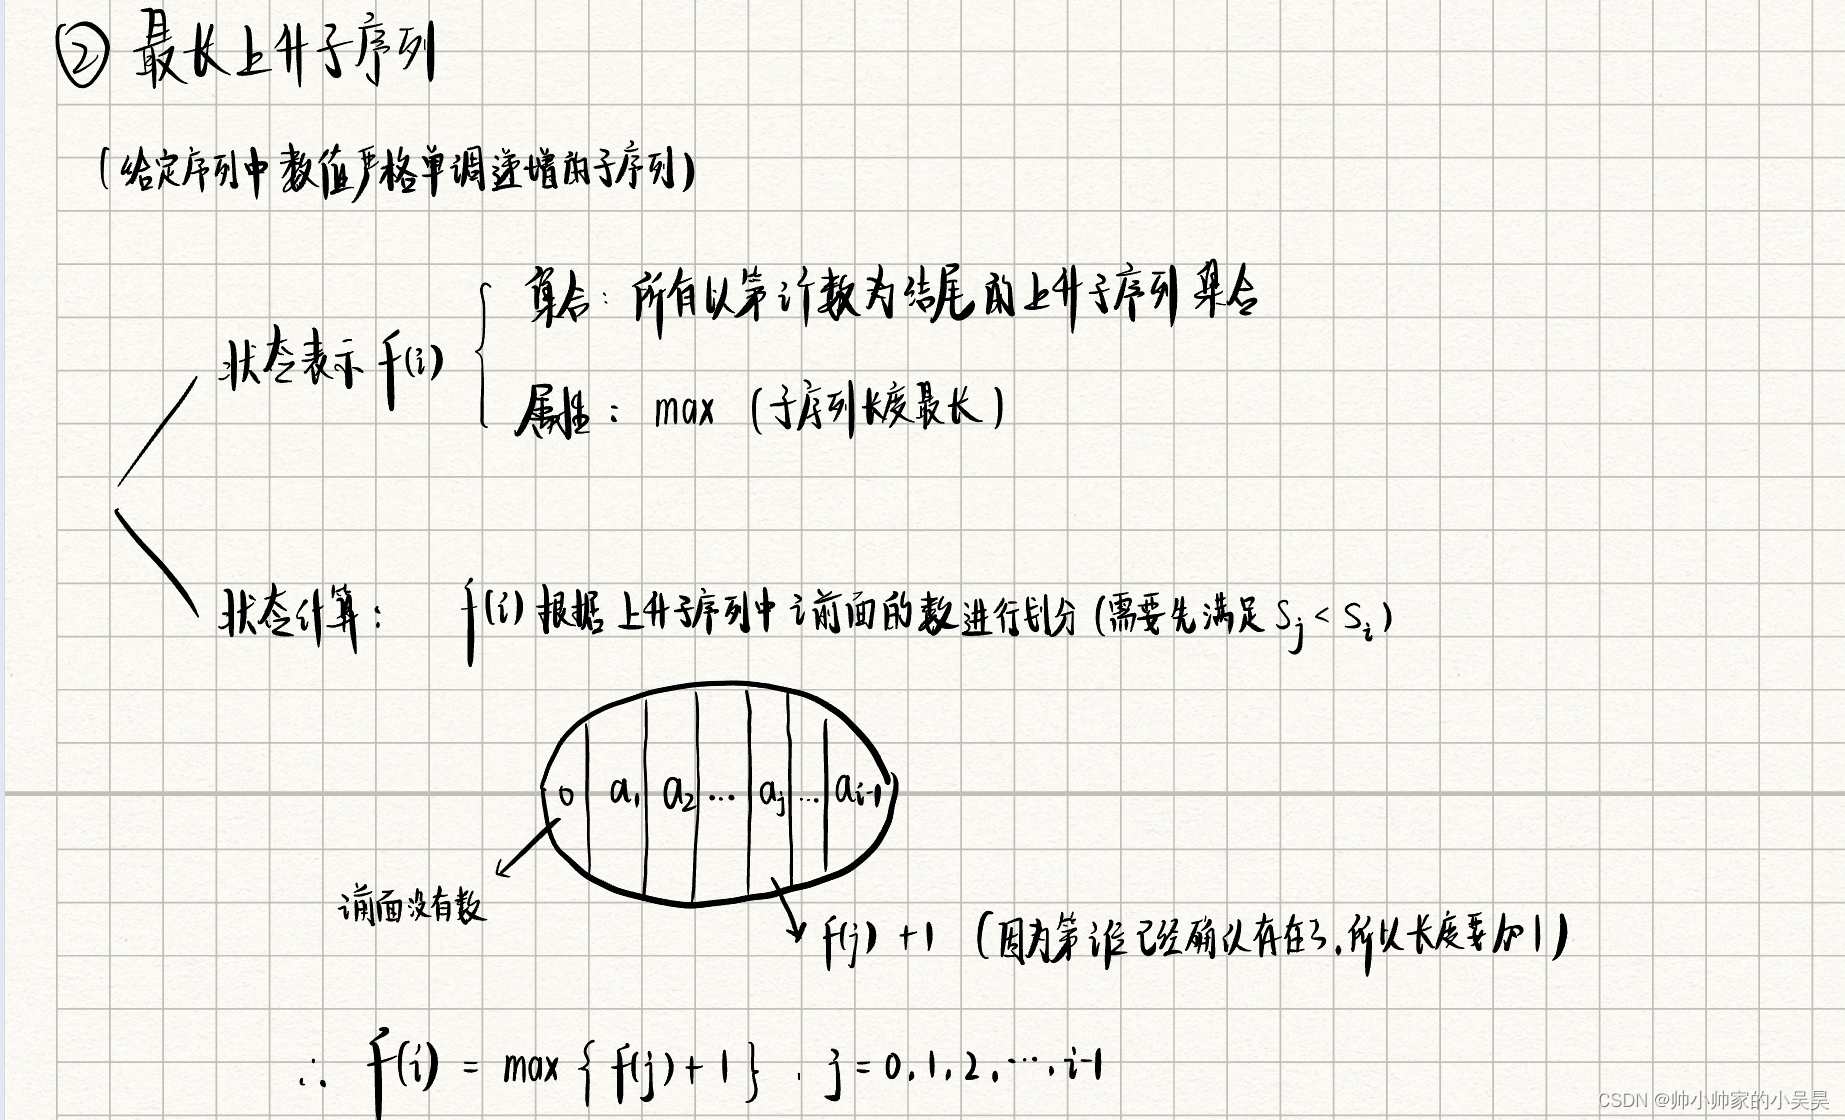 ② 最长上升子序列
(给定序列中数值严格单调递增的子序列)
集合: 所有以第i个数为结尾的上升子序列集合
状态表示 f(i)
属性: max (子序列长度最长)
状态计算: f(i) 根据上升子序列中i前面的数进行划分 (需要先满足 Sj < Si)
0 a1 a2 ... aj ... ai-1
i前面没有数
f(j) + 1 (因为第i位已经确认存在了,所以长度要加1)
∴ f(i) = max { f(j) + 1 } , j = 0,1,2,...,i-1
CSDN @帅小帅家的小吴昊